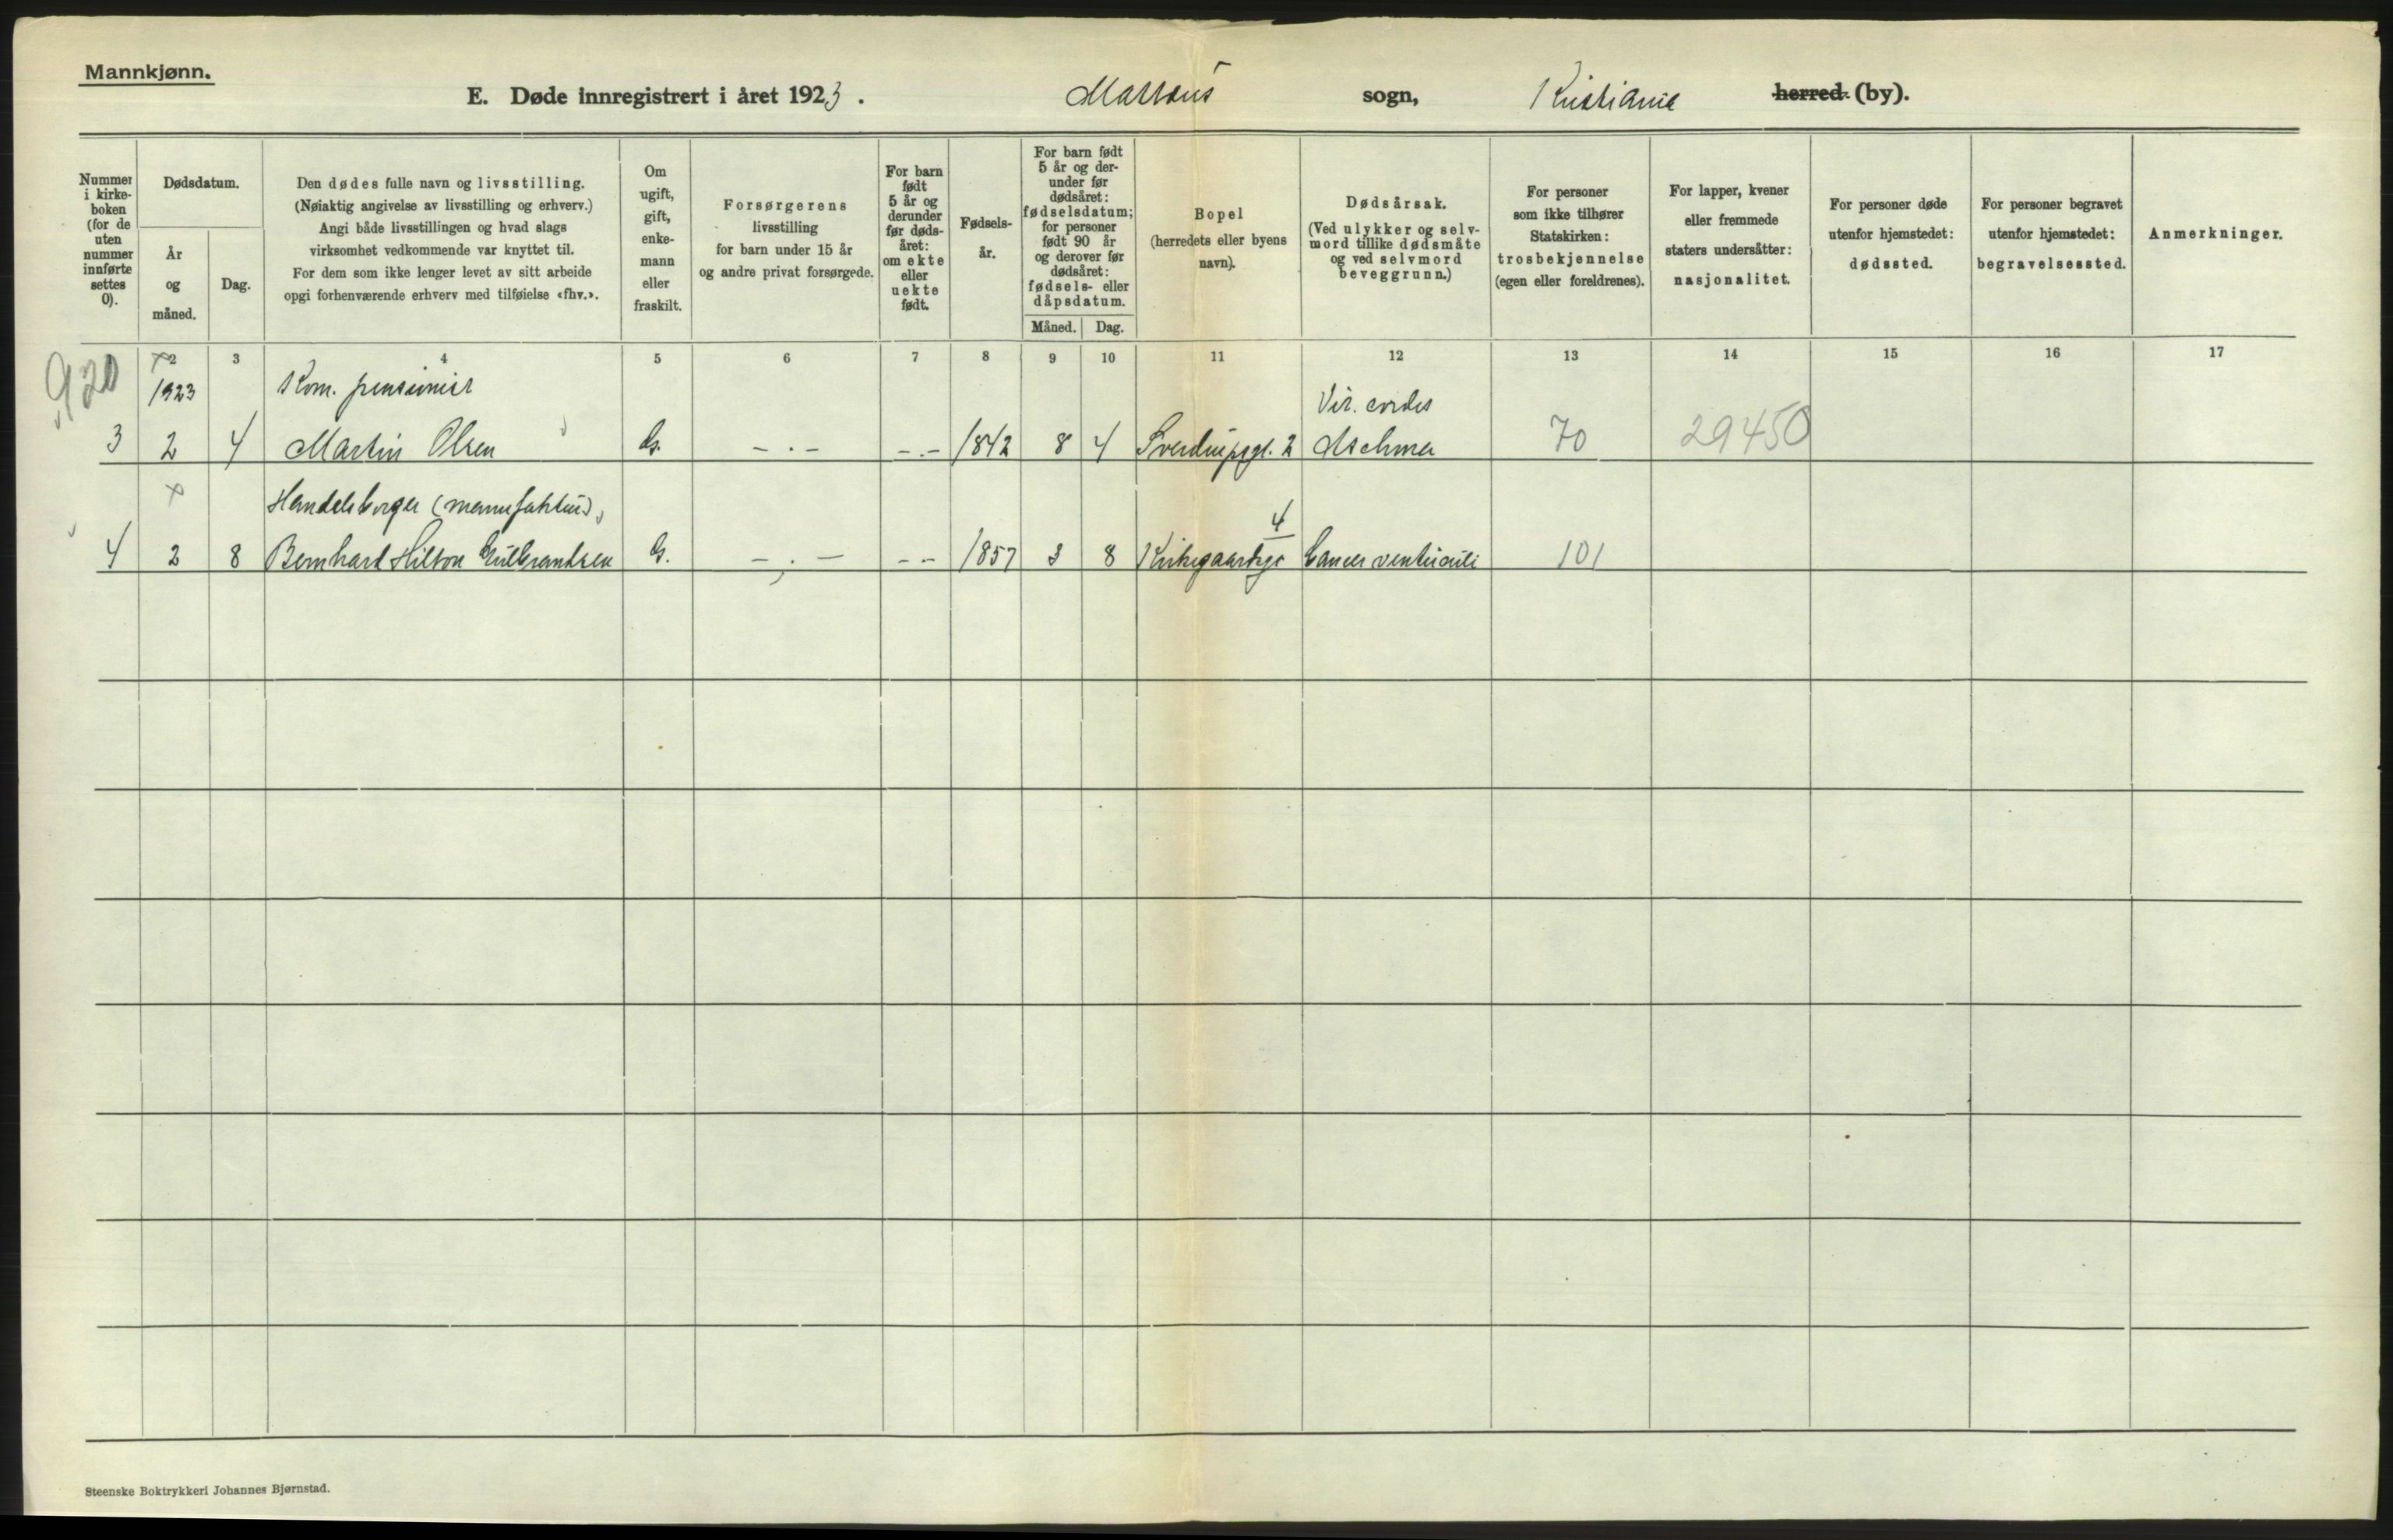 Mannkjønn.
E. Døde innregistrert i året 1923. Mattæus sogn, Kristiania herred. (by).
Nummer
i kirke-
boken
(for de
uten
nummer
innførte
settes
0).
Dødsdatum.
År
og
måned.
Dag.
Den dødes fulle navn og livsstilling.
(Nøiaktig angivelse av livsstilling og erhverv.)
Angi både livsstillingen og hvad slags
virksomhet vedkommende var knyttet til.
For dem som ikke lenger levet av sitt arbeide
opgi forhenværende erhverv med tilføielse «fhv.».
Om
ugift,
gift,
enke-
mann
eller
fraskilt.
Forsørgerens
livsstilling
for barn under 15 år
og andre privat forsørgede.
For barn
født
5 år og
derunder
før døds-
året:
om ekte
eller
uekte
født.
Fødsels-
år.
For barn født
5 år og der-
under før
dødsåret:
fødselsdatum;
for personer
født 90 år
og derover før
dødsåret:
fødsels- eller
dåpsdatum.
Måned. Dag.
Bopel
(herredets eller byens
navn).
Dødsårsak.
(Ved ulykker og selv-
mord tillike dødsmåte
og ved selvmord
beveggrunn.)
For personer
som ikke tilhører
Statskirken:
trosbekjennelse
(egen eller foreldrenes).
For lapper, kvener
eller fremmede
staters undersåtter:
nasjonalitet.
For personer døde
utenfor hjemstedet:
dødssted.
For personer begravet
utenfor hjemstedet:
begravelsessted.
Anmerkninger.
2 3 4 5 6 7 8 9 10 11 12 13 14 15 16 17
920
1923 Kom. pensionist Vit. cordis
3 2 4 Martin Olsen G. -.- -.- 1842 8 4 Sverdrupsgt. 2 Asthma 70 29450
Handelsborger (manufaktur) 4
4 2 8 Bernhard Hilton Gulbrandsen G. -.- -- 1857 3 8 Kirkegaardsgt Cancer ventriculi 101
Steenske Boktrykkeri Johannes Bjørnstad.